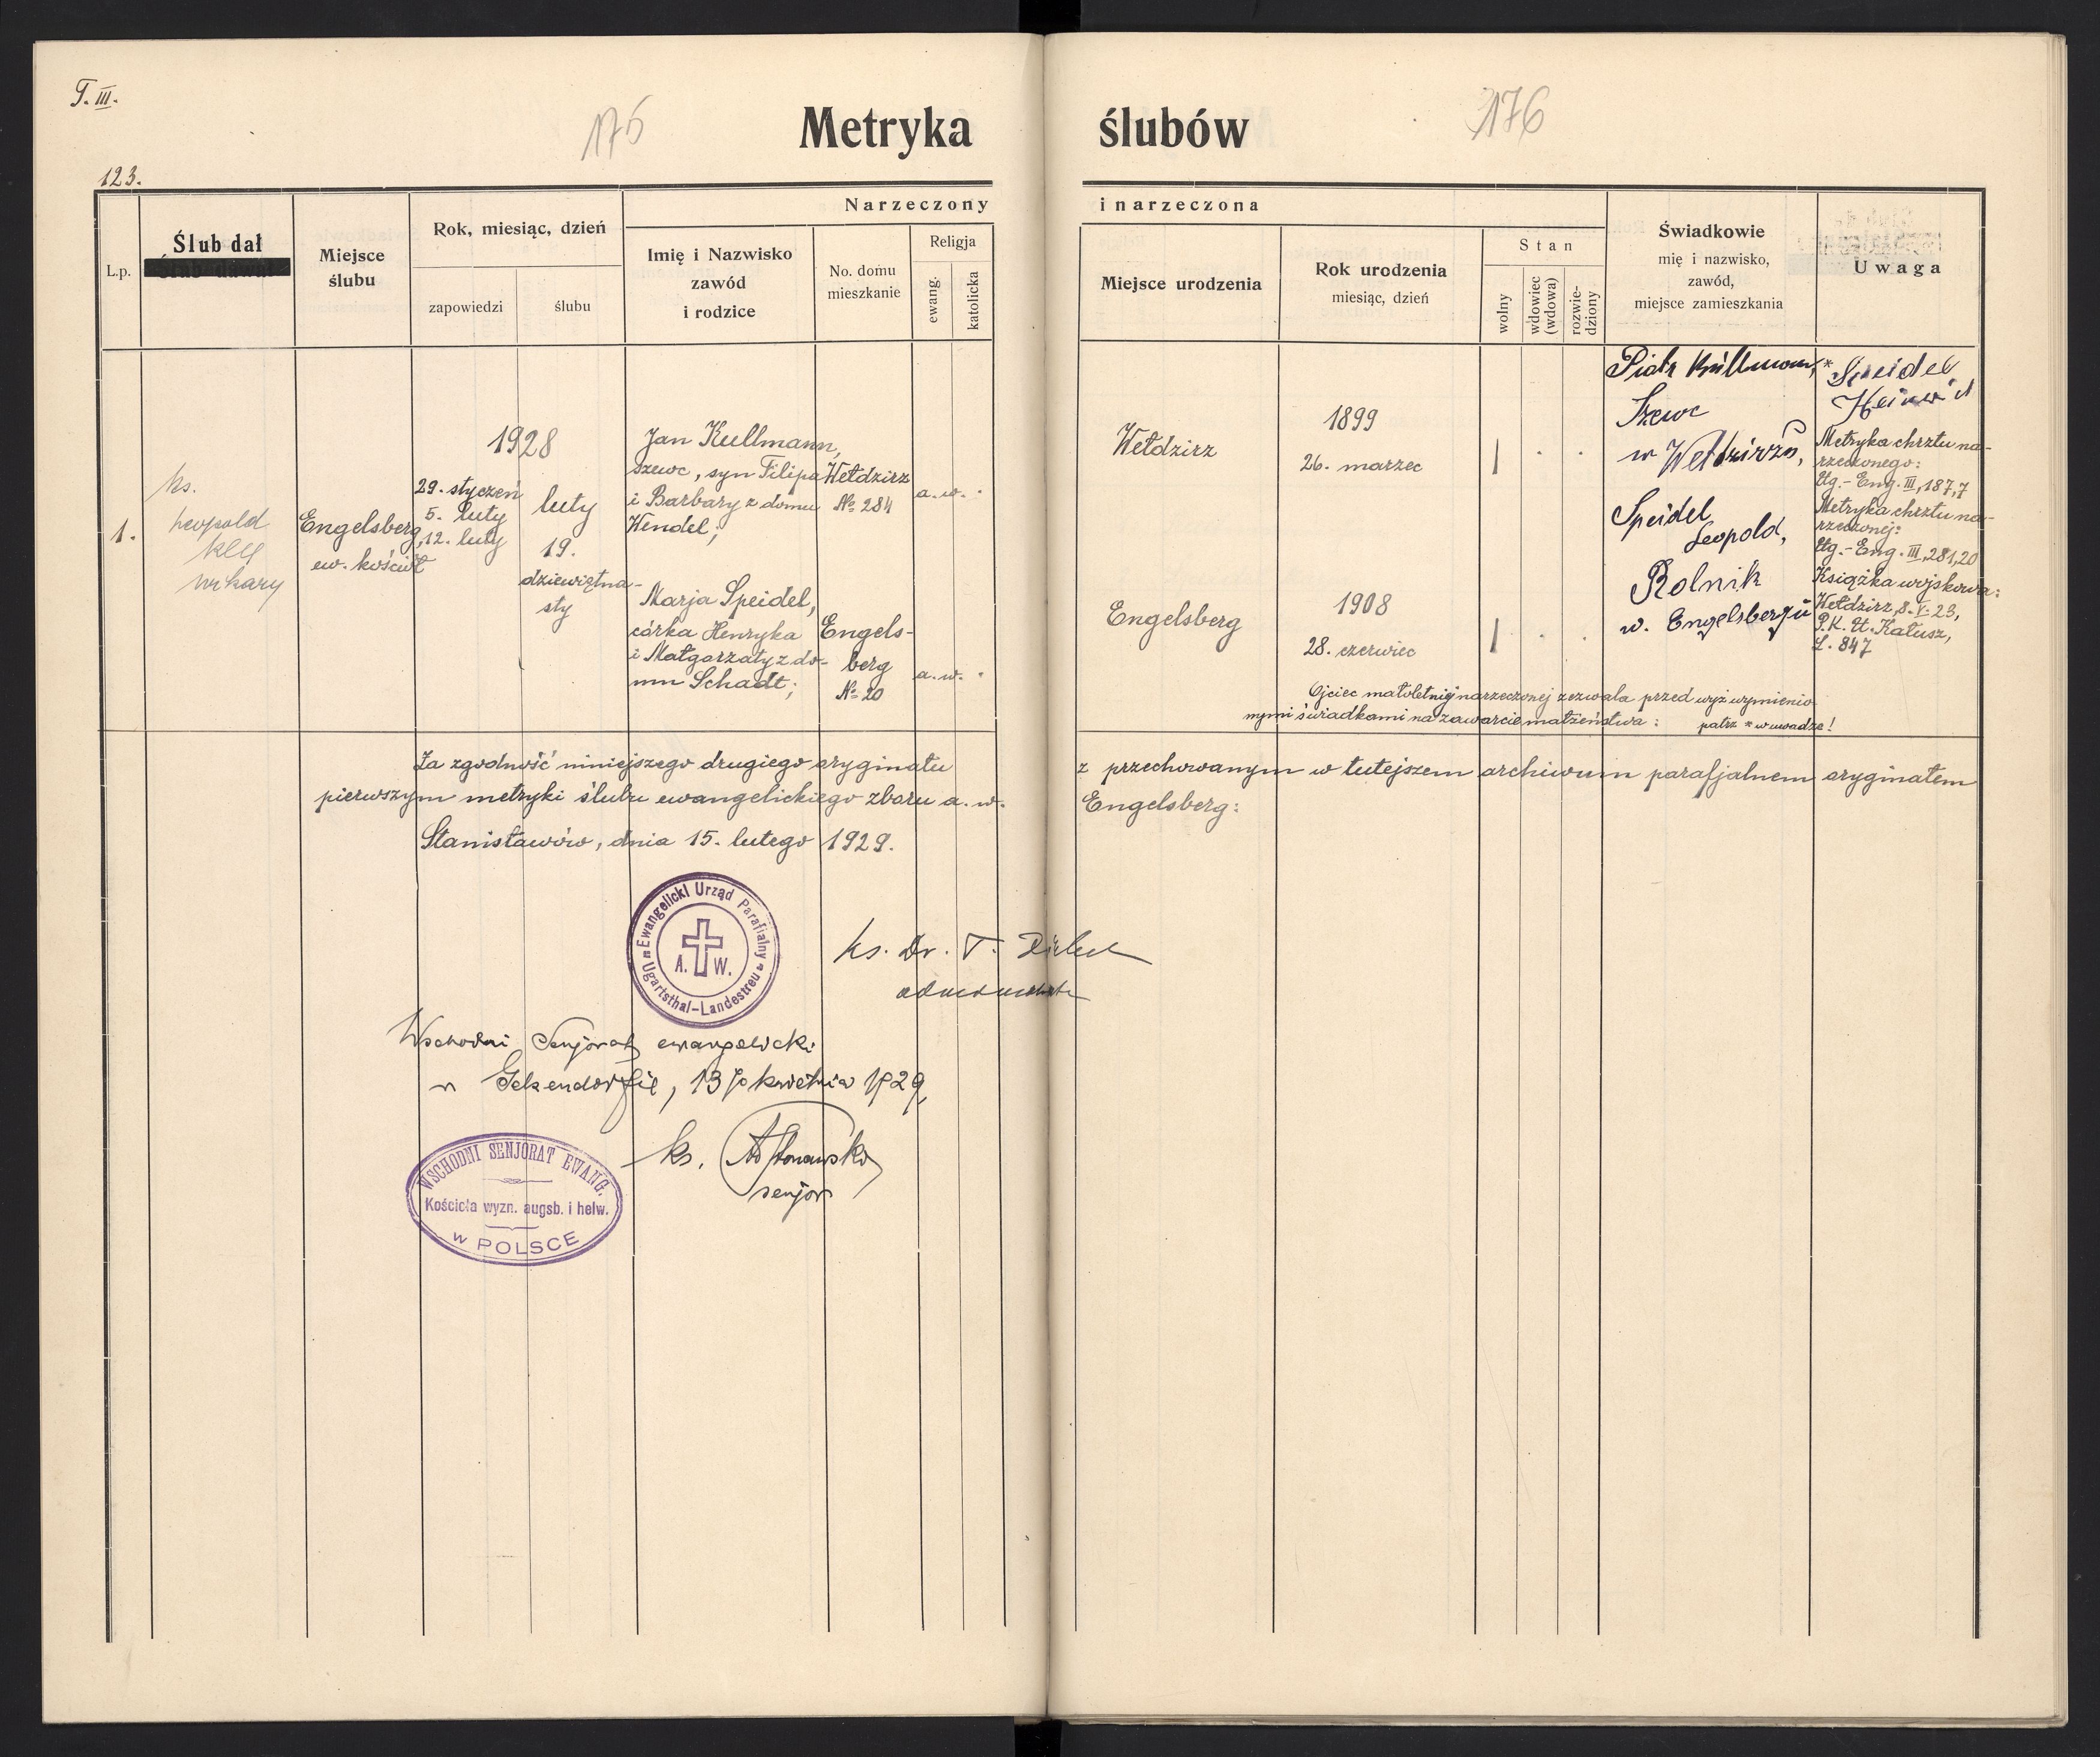 T. III.
175
Metryka ślubów
176
123.
L.p.
Ślub dał
Miejsce
ślubu
Rok, miesiąc, dzień
zapowiedzi
ślubu
Narzeczony
Imię i Nazwisko
zawód
i rodzice
No. domu
mieszkanie
Religja
ewang.
katolicka
i narzeczona
Miejsce urodzenia
Rok urodzenia
miesiąc, dzień
Stan
wolny
wdowiec
(wdowa)
rozwie-
dziony
Świadkowie
mię i nazwisko,
zawód,
miejsce zamieszkania
Uwaga
1.
ks.
Leopold
Kell
wikary
Engelsberg,
ew. kościół
1928
29. styczeń
5. luty
12. luty
luty
19.
dziewiętna-
sty
Jan Kullmann,
szewc, syn Filipa
i Barbary z domu
Wendel;
Wełdzirz
№ 284
a. w.
Marja Speidel,
córka Henryka
i Małgorzaty z do-
mu Schadt;
Engels-
berg
№ 20
a. w.
Wełdzirz
1899
26. marzec
Engelsberg
1908
28. czerwiec
Piotr Kullmann,
Szewc
w Wełdzirzu,
Speidel
Leopold,
Rolnik
w. Engelsbergu
* Speidel
Heinrich
Metryka chrztu na-
rzeczonego:
Ug.- Eng. III, 187,7
Metryka chrztu na-
rzeczonej:
Ug.- Eng. III, 281,20
Książka wojskowa:
Wełdzirz, 8. V. 23,
P. K. U. Kałusz,
L. 847
Ojciec małoletniej narzeczonej zezwala przed wyż wymienio-
nymi świadkami na zawarcie małżeństwa: patrz * w uwadze!
Za zgodność niniejszego drugiego oryginału z przechowanym w tutejszem archiwum parafjalnem oryginałem
pierwszym metryki ślubu ewangelickiego zboru a. w. Engelsberg:
Stanisławów, dnia 15. lutego 1929.
Ewangelicki Urząd Parafialny
A. W.
Ugartsthal-Landestreu
ks. Dr. T.
Wschodni Senjorat ewangelicki
w Gelsendorfie, 13go kwietnia 1929,
ks.
senjor
WSCHODNI SENJORAT EWANG.
Kościoła wyzn. augsb. i helw.
w POLSCE